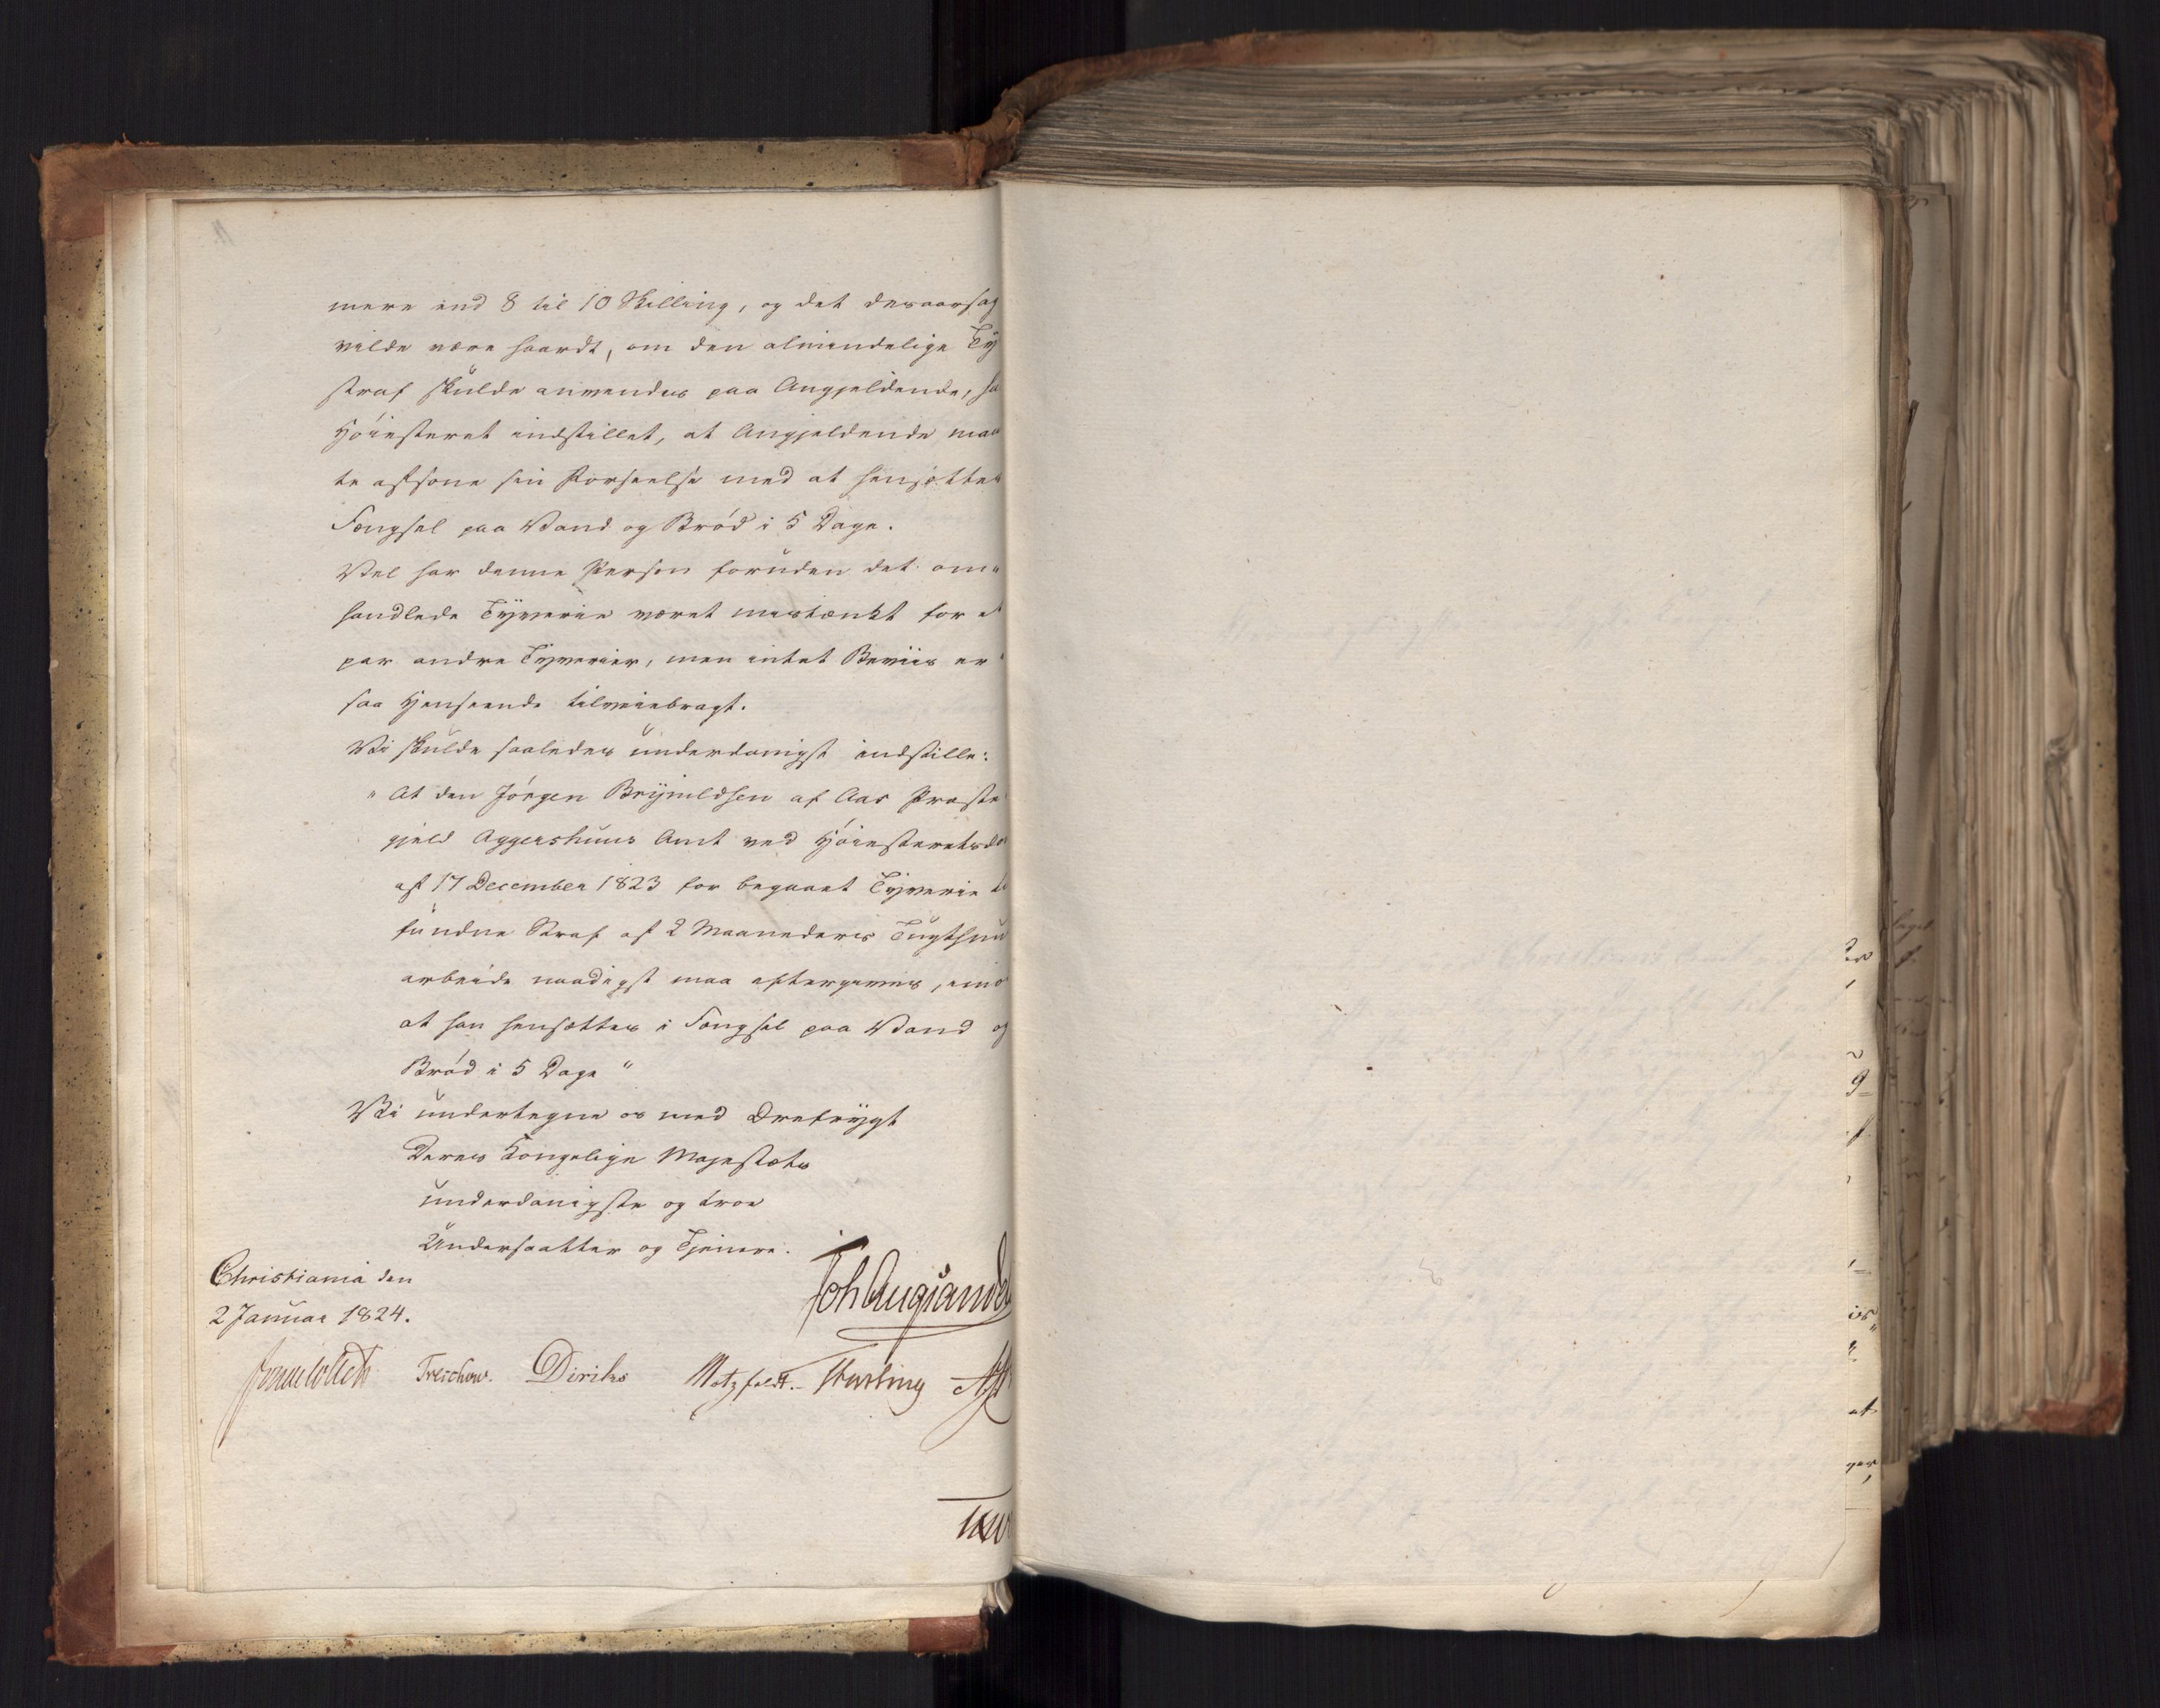 mere end 8 til 10 Skilling, og det desaarsag
vilde være haardt, om den almindelige Ty
straf skulde anvendes paa Angjeldende, ha
Höiesteret indstillet, at Angjeldende maa
te afsone sin Forseelse med at hensættes
Fængsel paa Vand og Bröd i 5 Dage.
Vel har denne Person foruden det om
handlede Tyverie været mistænkt for et
par andre Tyverier, men intet Beviis er
saa Henseende tilveiebragt.
Vi skulde saaledes underdanigst indstille:
"At den Jörgen Brynildsen af Aas Præste
gjeld Aggershuus Amt ved Höiesteretsdo
af 17 December 1823 for begaaet Tyverie
fundne Straf af 2 Maaneders Tugthuu
arbeide naadigst maa eftergives, imo
at han hensættes i Fængsel paa Vand og
Bröd i 5 Dage"
Vi undertegne os med Ærefrygt
Deres Kongelige Majestæts
underdanigste og troe
Undersaatter og Tjenere.
Christiania den
2 Januar 1824.
Joh Aug Sande
Jonas Collett Treschow. Diriks Motzfeldt. Fasting